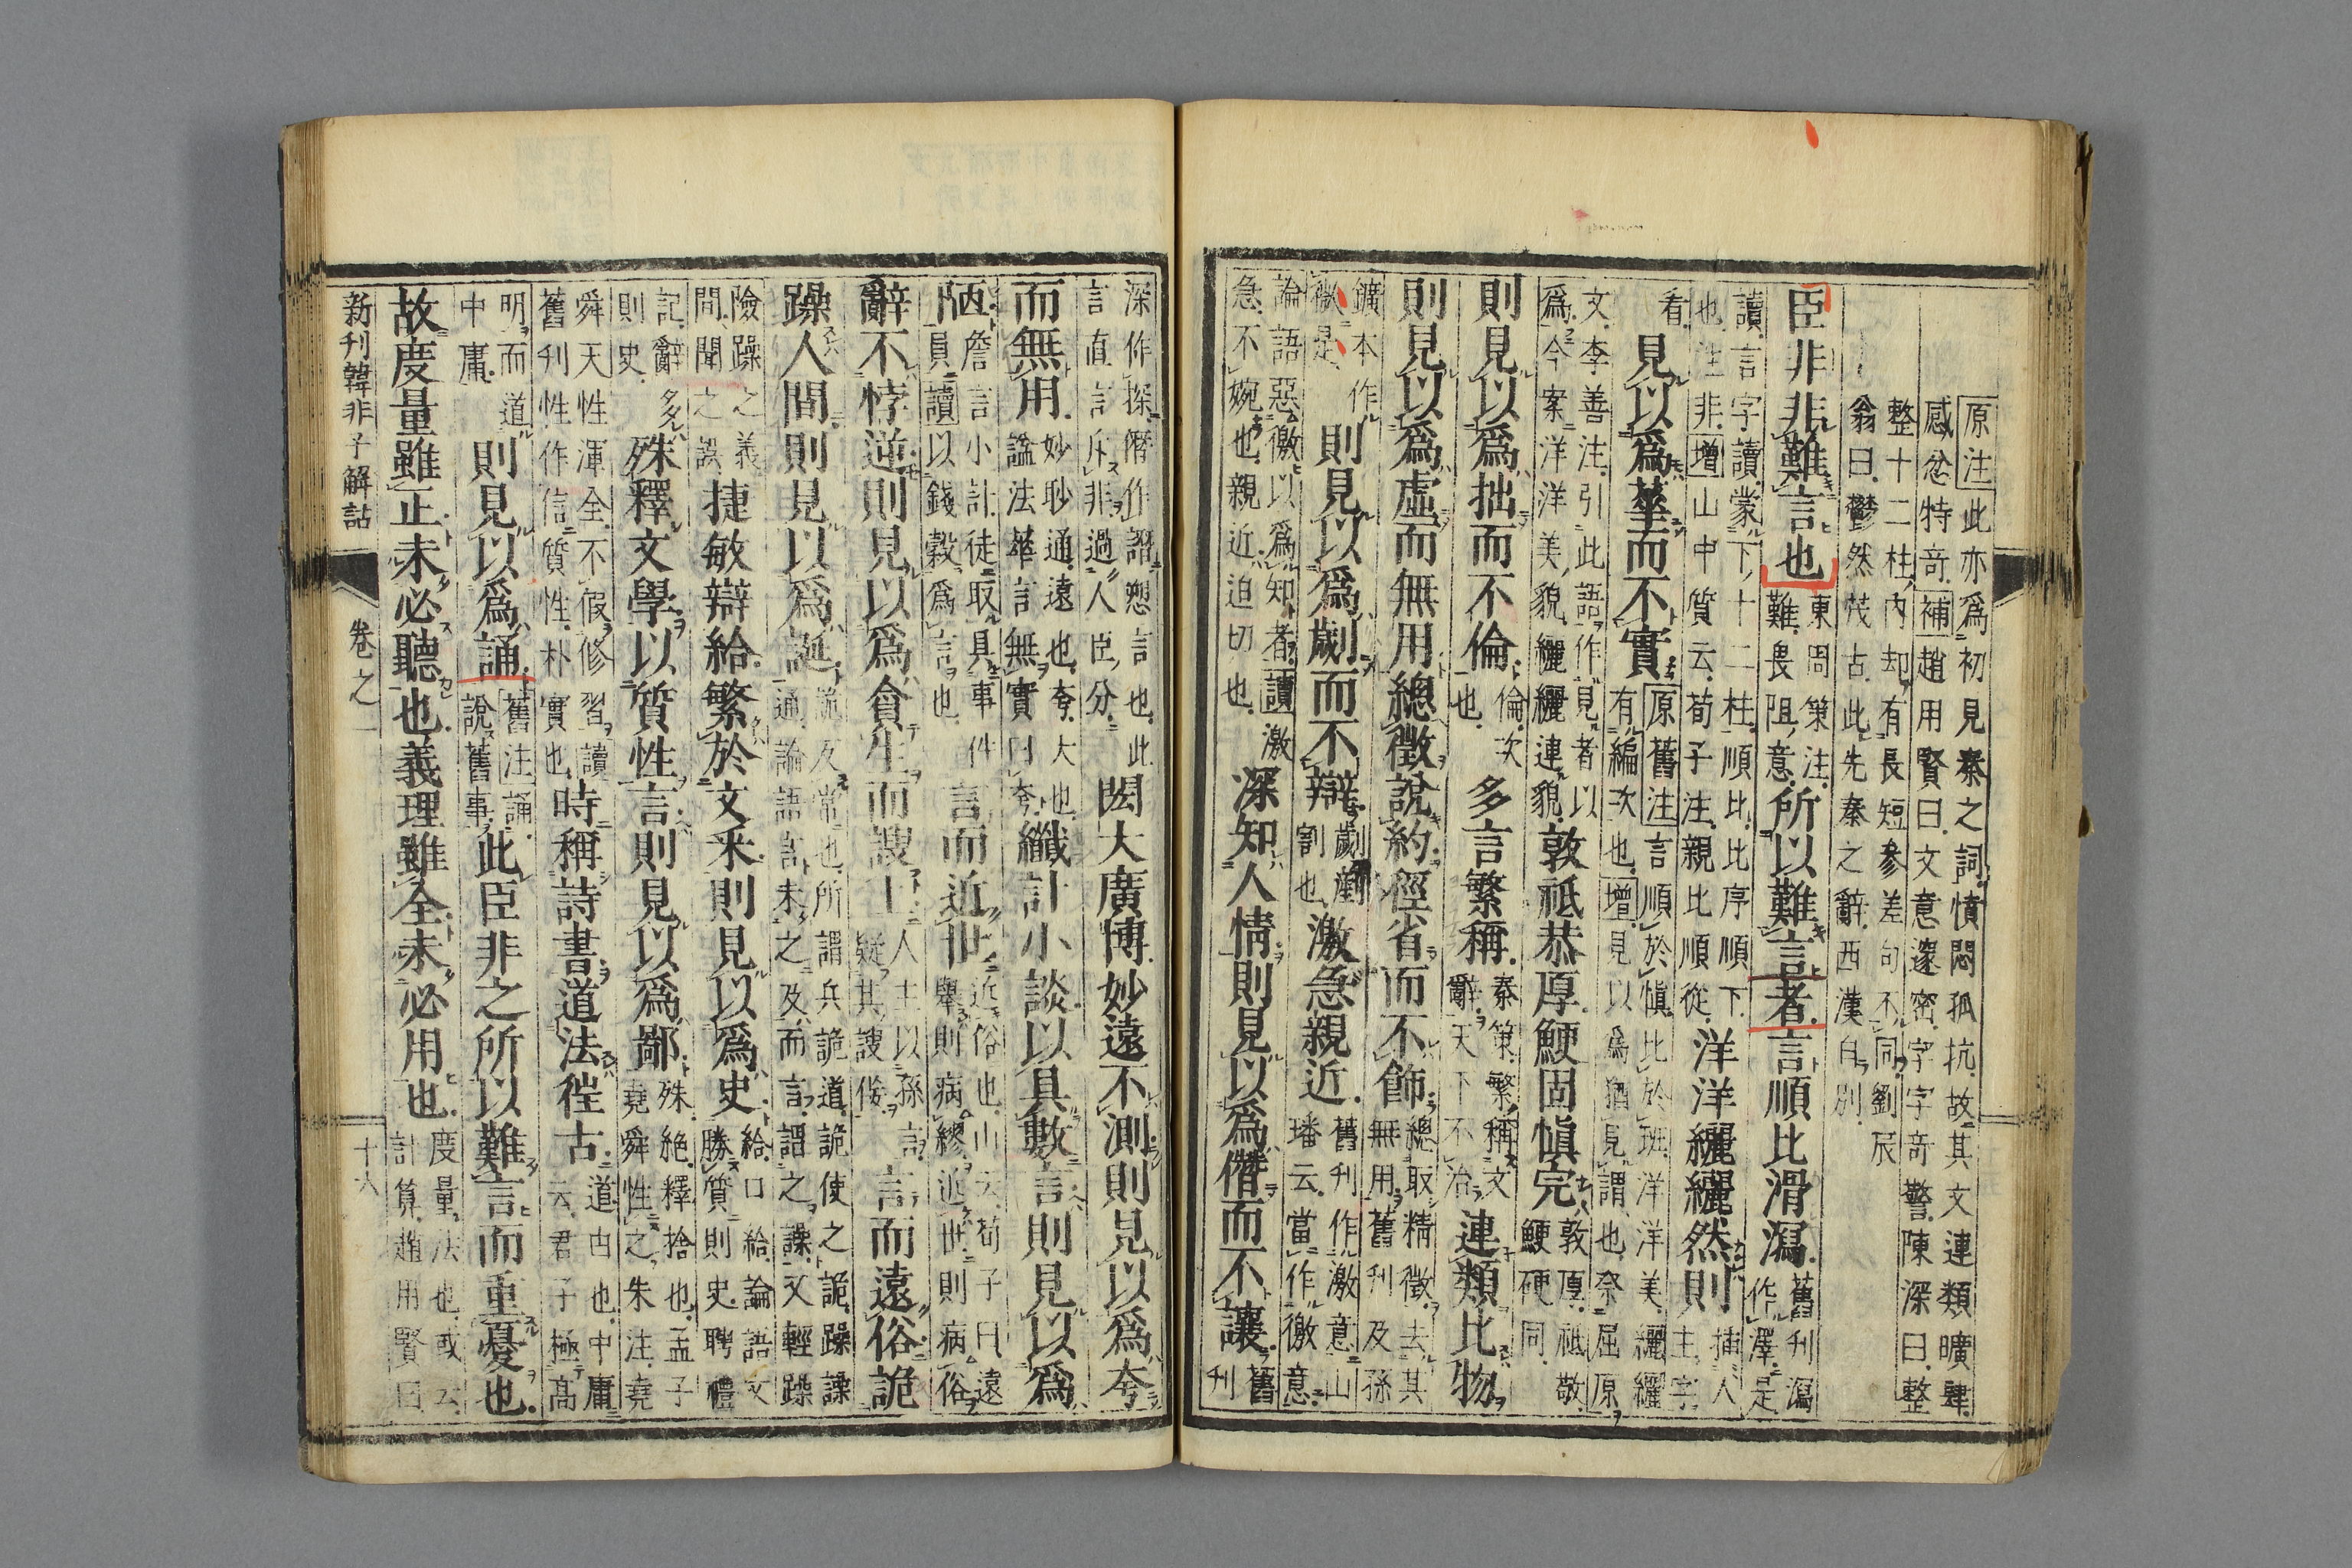 原注此亦爲初見秦之詞憤悶孤抗故其文連類曠肆
感忿特奇補趙用賢曰文意邃密字字奇警陳深曰整
整十二柱内却有長短參差句不同劉辰
翁曰鬱然茂古此先秦之辭西漢自別
臣非非難言也東周策注難畏阻意所以難言者言順比滑澤舊刊瀉作澤是
讀言字讀蒙下十二柱順比比序順下
也注非增山中質云荀子注親比順從洋洋纚纚然則插人主字
看見以爲華而不實原舊注言順於愼比於班洋洋美纚纚
有編次也增見以爲猶見謂也奈屈原
文李善注引此語作見者以
爲今案洋洋美貌纚纚連貌敦祗恭厚鯁固愼完敦厚祗敬鯁硬同
則見以爲拙而不倫倫次也多言繁稱秦策繁稱文辭天下不治連類比物
則見以爲虛而無用總徵說約徑省而不飾總取精徵去其無用舊刊及孫
鑛本作
徵是則見以爲劌而不辯劌割也激急親近舊刊作激意山璠云當作徼意
論語惡徼以爲知者讀激
急不婉也親近近迫切也深知人情則見以爲僭而不讓舊刊
深作探僭作譖愬言也此
言直言斥非過人臣分閎大廣博妙遠不測則見以爲夸
而無用妙眇通遠也夸大也謐法華言無實曰夸纖計小談以具數言則見以爲
陋詹言小計徒取具事件員讀以錢穀爲言也言而近世近俗也山云荀子曰遠舉則病繆近世則病俗
辭不悖逆則見以爲貪生而諛上人主以孫言疑其諛佞言而遠俗詭
躁人間則見以爲誕詭反常也所謂兵詭道詭使之詭躁譟通論語言未之及而言謂之譟又輕躁
險躁之義
間聞之誤捷敏辯給繁於文采則見以爲史給口給論語文勝質則史聘禮
記辭多
則史殊釋文學以質性言則見以爲鄙殊絕釋捨也孟子堯舜性之朱注堯
舜天性渾全不假修習讀
舊刊性作信質性朴實也時稱詩書道法往古道由也中庸云君子極高
明而道
中庸則見以爲誦舊注誦說舊事此臣非之所以難言而重憂也
故度量雖正未必聽也義理雖全未必用也度量法也或云計算趙用賢曰
新刊韓非子解詁
卷之一
十六